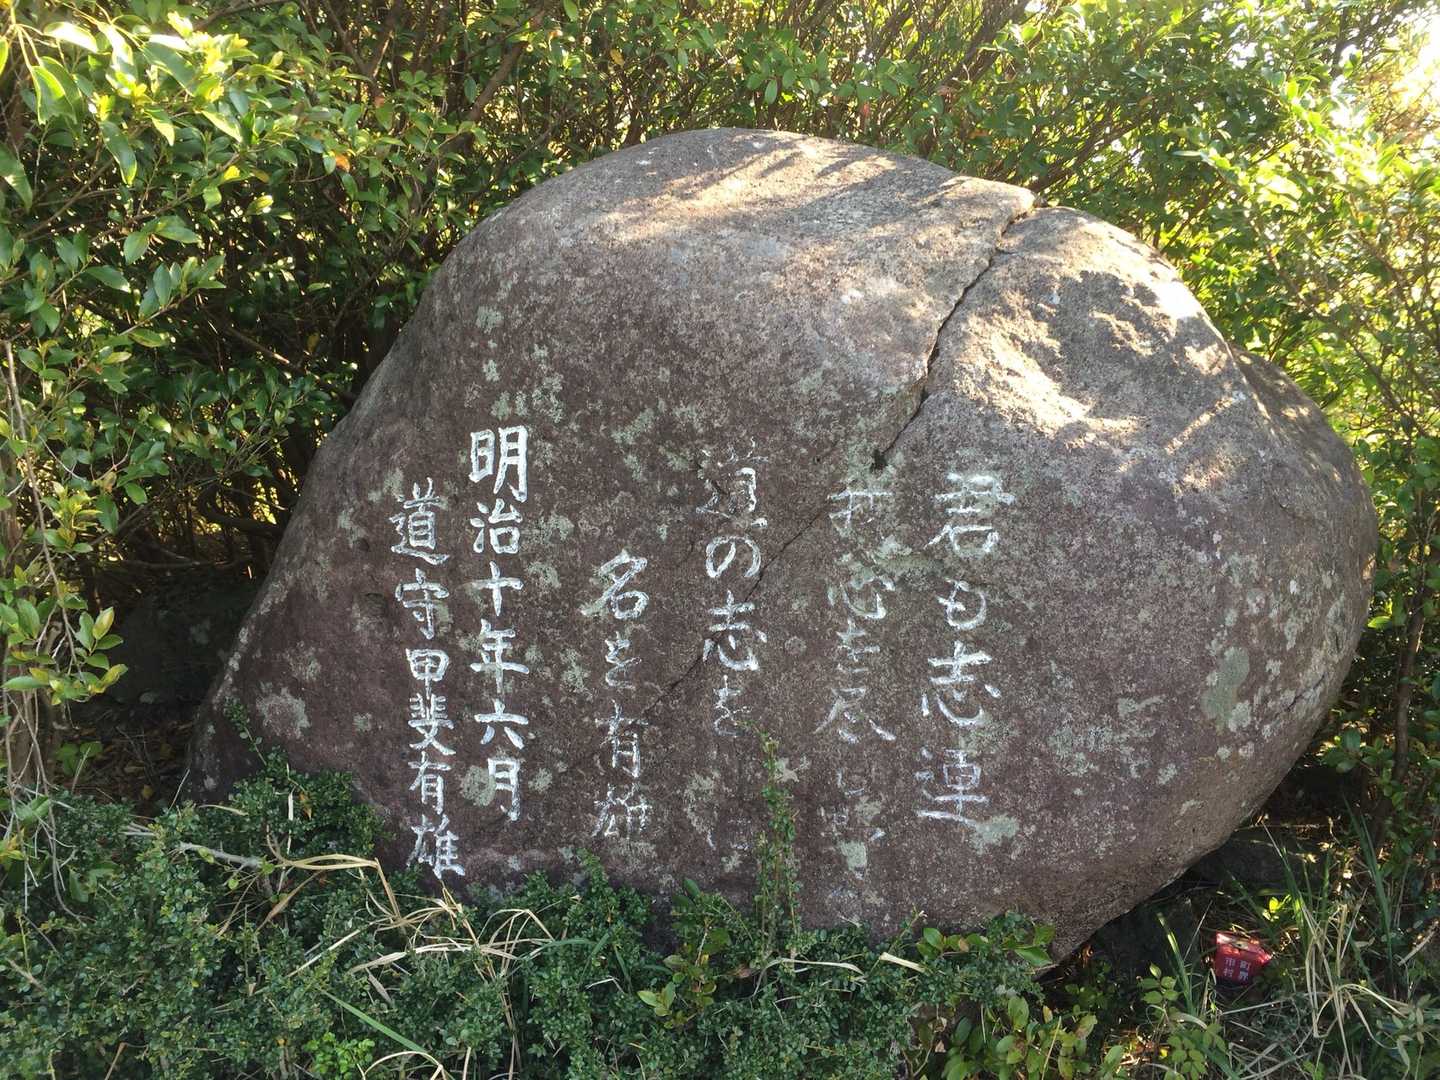 君も志連
我心を尽し
道の志を
名を有雄
明治十年六月
道守甲斐有雄
市町村界